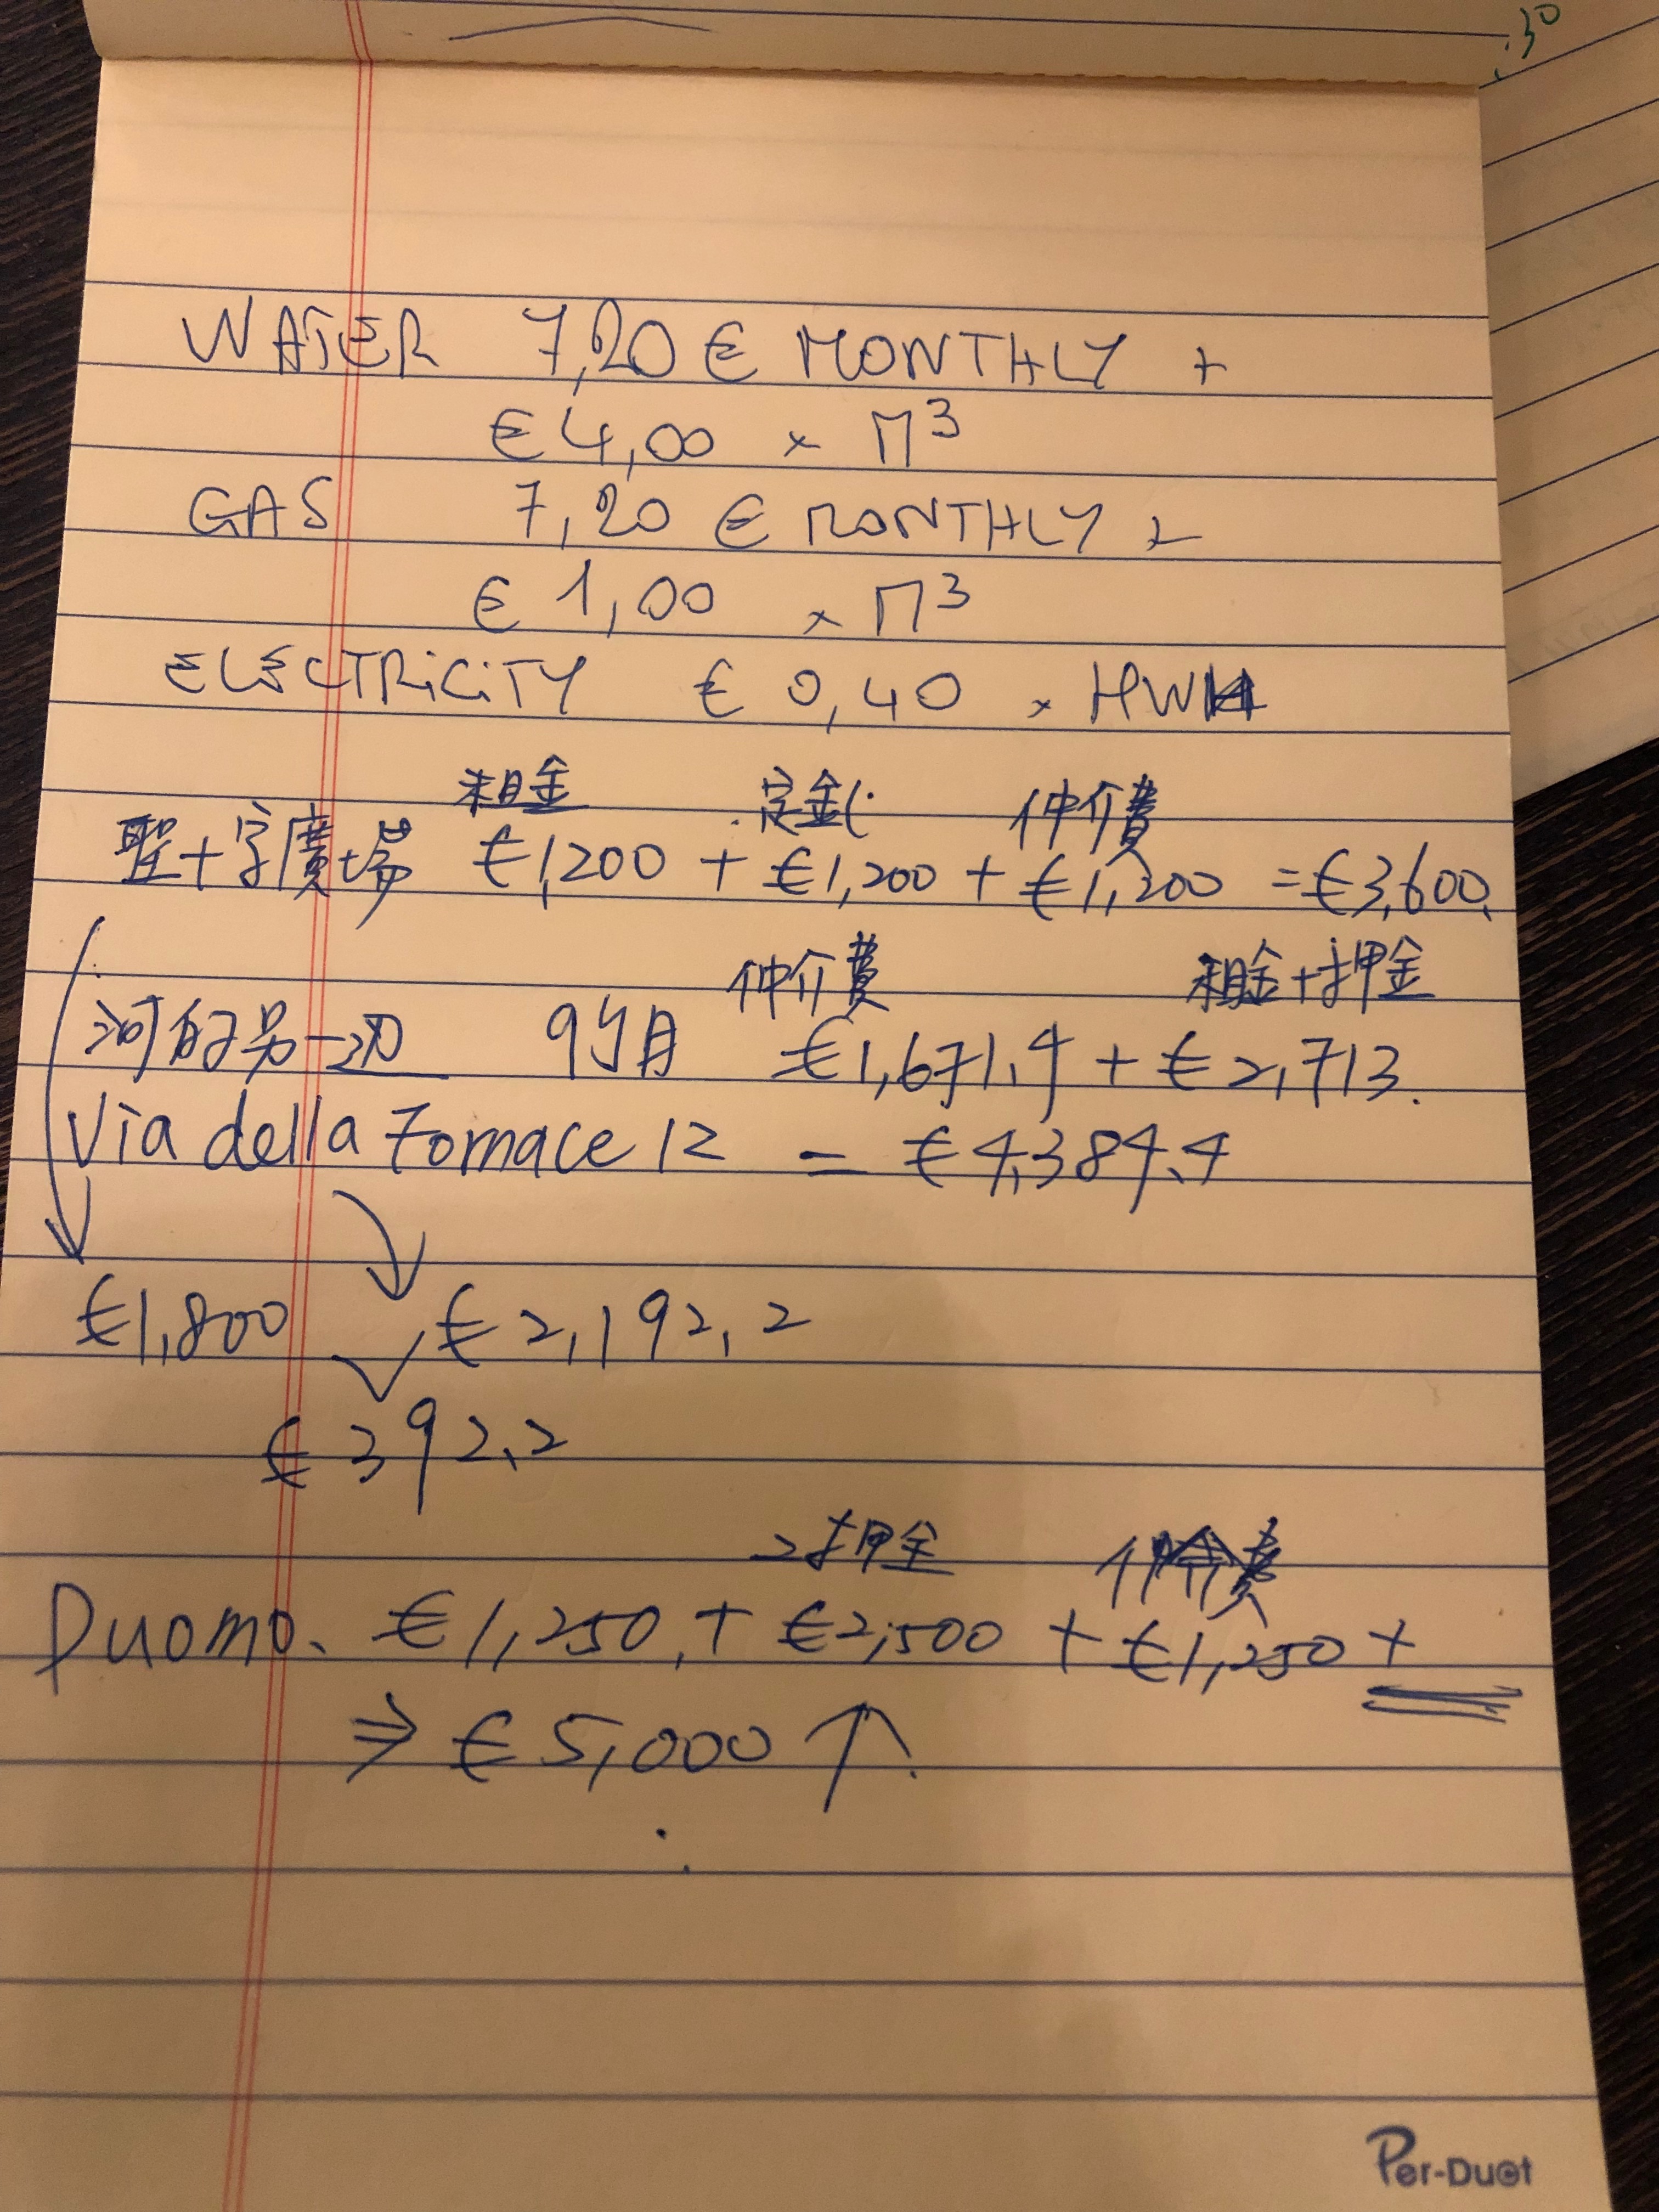 .30
WATER 7,20 € MONTHLY +
€ 4,00 x M³
GAS 7,20 € MONTHLY +
€ 1,00 x M³
ELECTRICITY € 0,40 x HWH
租金 定金( 仲介費
聖十字廣場 €1,200 + €1,200 + €1,200 = €3,600.
仲介費 租金+押金
河的另一边 9個月 €1,671.4 + €2,713.
Via della Fornace 12 = €4,384.4
€1,800 €2,192.2
€392.2
2押金 仲介費
Duomo. €1,250 + €2,500 + €1,250 +
⇒ €5,000 ↑.
Per-Duct